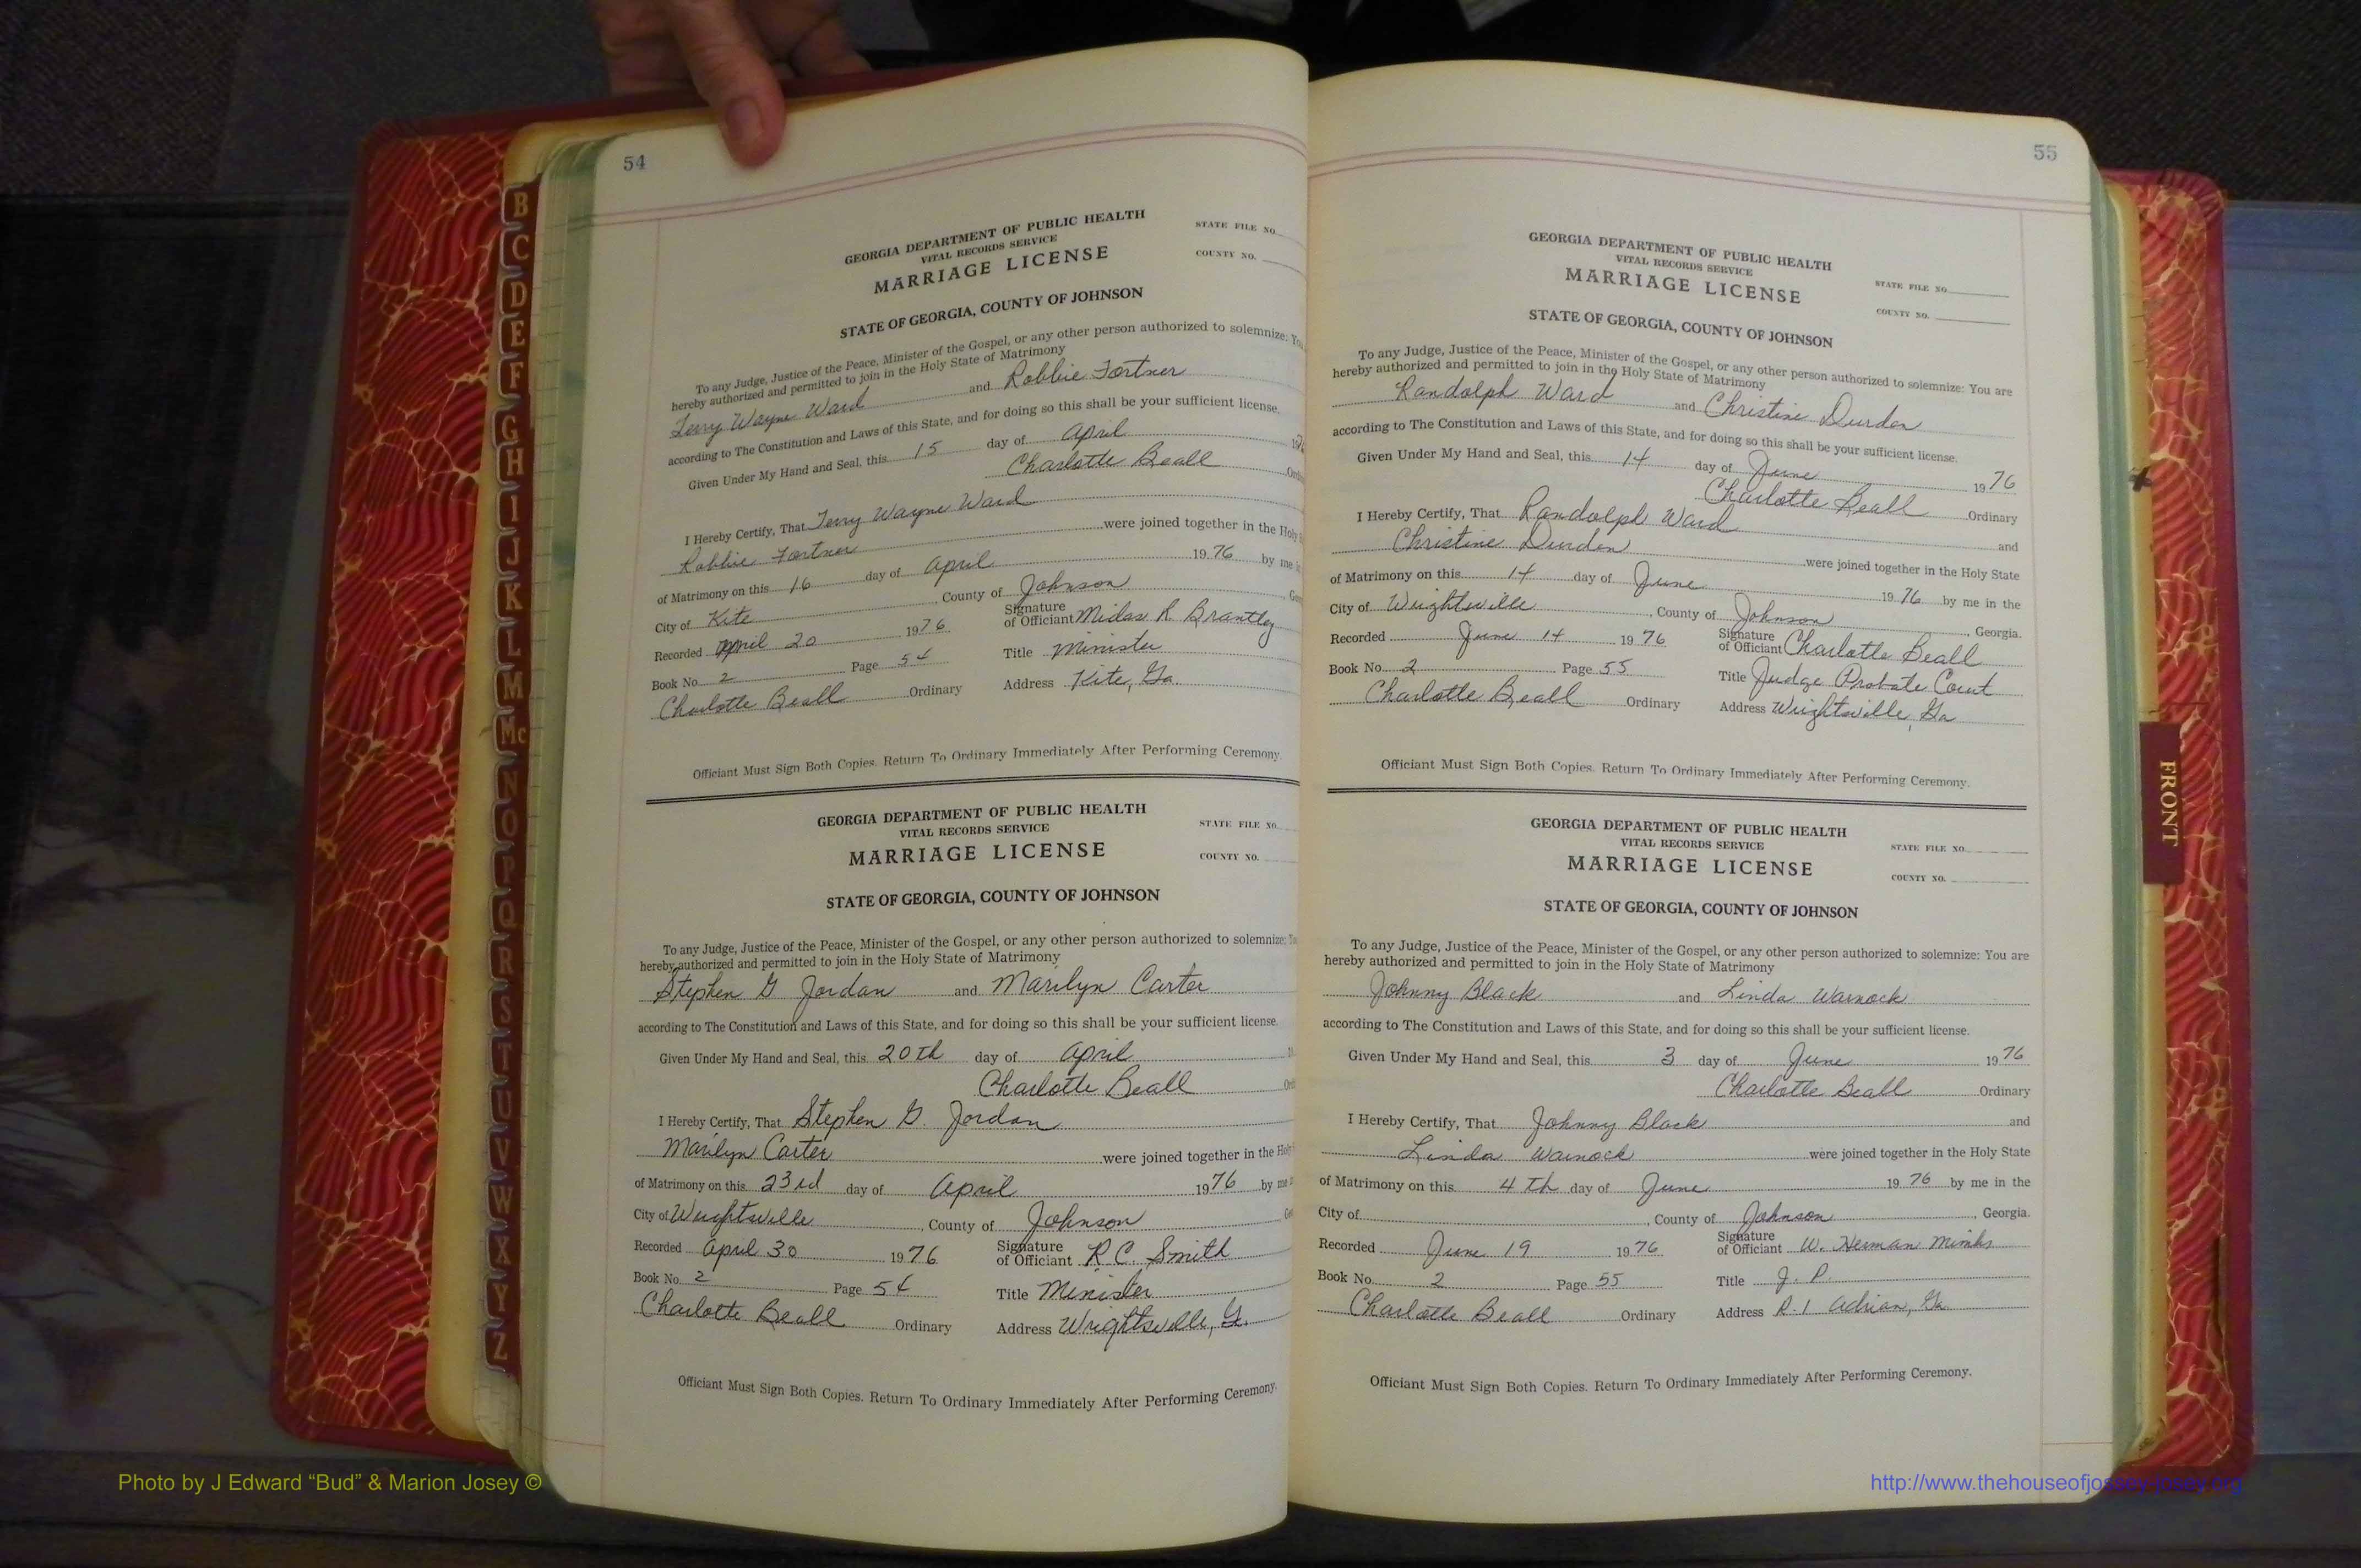 54
GEORGIA DEPARTMENT OF PUBLIC HEALTH
VITAL RECORDS SERVICE
MARRIAGE LICENSE
STATE FILE NO.
COUNTY NO.
STATE OF GEORGIA, COUNTY OF JOHNSON
To any Judge, Justice of the Peace, Minister of the Gospel, or any other person authorized to solemnize: You
hereby authorized and permitted to join in the Holy State of Matrimony
Terry Wayne Ward and Robbie Fortner
according to The Constitution and Laws of this State, and for doing so this shall be your sufficient license.
Given Under My Hand and Seal, this 15 day of April
Charlotte Beall
I Hereby Certify, That Terry Wayne Ward
Robbie Fortner were joined together in the Holy
of Matrimony on this 16 day of April 1976 by me
City of Kite, County of Johnson
Recorded April 20 1976 Signature of Officiant Midas R. Brantley
Book No. 2 Page 54 Title Minister
Charlotte Beall Ordinary Address Kite, Ga.
Officiant Must Sign Both Copies. Return To Ordinary Immediately After Performing Ceremony.
GEORGIA DEPARTMENT OF PUBLIC HEALTH
VITAL RECORDS SERVICE
MARRIAGE LICENSE
STATE FILE NO.
COUNTY NO.
STATE OF GEORGIA, COUNTY OF JOHNSON
To any Judge, Justice of the Peace, Minister of the Gospel, or any other person authorized to solemnize:
hereby authorized and permitted to join in the Holy State of Matrimony
Stephen G Jordan and Marilyn Carter
according to The Constitution and Laws of this State, and for doing so this shall be your sufficient license.
Given Under My Hand and Seal, this 20th day of April
Charlotte Beall
I Hereby Certify, That Stephen G. Jordan
Marilyn Carter were joined together in the Holy
of Matrimony on this 23rd day of April 1976 by me
City of Wrightsville, County of Johnson
Recorded April 30 1976 Signature of Officiant R C. Smith
Book No. 2 Page 54 Title Minister
Charlotte Beall Ordinary Address Wrightsville, Ga.
Officiant Must Sign Both Copies. Return To Ordinary Immediately After Performing Ceremony.
55
GEORGIA DEPARTMENT OF PUBLIC HEALTH
VITAL RECORDS SERVICE
MARRIAGE LICENSE
STATE FILE NO.
COUNTY NO.
STATE OF GEORGIA, COUNTY OF JOHNSON
To any Judge, Justice of the Peace, Minister of the Gospel, or any other person authorized to solemnize: You are
hereby authorized and permitted to join in the Holy State of Matrimony
Randolph Ward and Christine Durden
according to The Constitution and Laws of this State, and for doing so this shall be your sufficient license.
Given Under My Hand and Seal, this 14 day of June 1976
Charlotte Beall Ordinary
I Hereby Certify, That Randolph Ward and
Christine Durden were joined together in the Holy State
of Matrimony on this 14 day of June 1976 by me in the
City of Wrightsville, County of Johnson, Georgia.
Recorded June 14 1976 Signature of Officiant Charlotte Beall
Book No. 2 Page 55 Title Judge Probate Court
Charlotte Beall Ordinary Address Wrightsville, Ga
Officiant Must Sign Both Copies. Return To Ordinary Immediately After Performing Ceremony.
GEORGIA DEPARTMENT OF PUBLIC HEALTH
VITAL RECORDS SERVICE
MARRIAGE LICENSE
STATE FILE NO.
COUNTY NO.
STATE OF GEORGIA, COUNTY OF JOHNSON
To any Judge, Justice of the Peace, Minister of the Gospel, or any other person authorized to solemnize: You are
hereby authorized and permitted to join in the Holy State of Matrimony
Johnny Black and Linda Warnock
according to The Constitution and Laws of this State, and for doing so this shall be your sufficient license.
Given Under My Hand and Seal, this 3 day of June 1976
Charlotte Beall Ordinary
I Hereby Certify, That Johnny Black and
Linda Warnock were joined together in the Holy State
of Matrimony on this 4th day of June 1976 by me in the
City of, County of Johnson, Georgia.
Recorded June 19 1976 Signature of Officiant W. Herman Minks
Book No. 2 Page 55 Title J. P.
Charlotte Beall Ordinary Address R-1 Adrian, Ga
Officiant Must Sign Both Copies. Return To Ordinary Immediately After Performing Ceremony.
B
C
D
E
F
G
H
I
J
K
L
M
Mc
N
O
P
Q
R
S
T
U
V
W
X
Y
Z
FRONT
Photo by J Edward “Bud” & Marion Josey ©
http://www.thehouseofjossey-josey.org